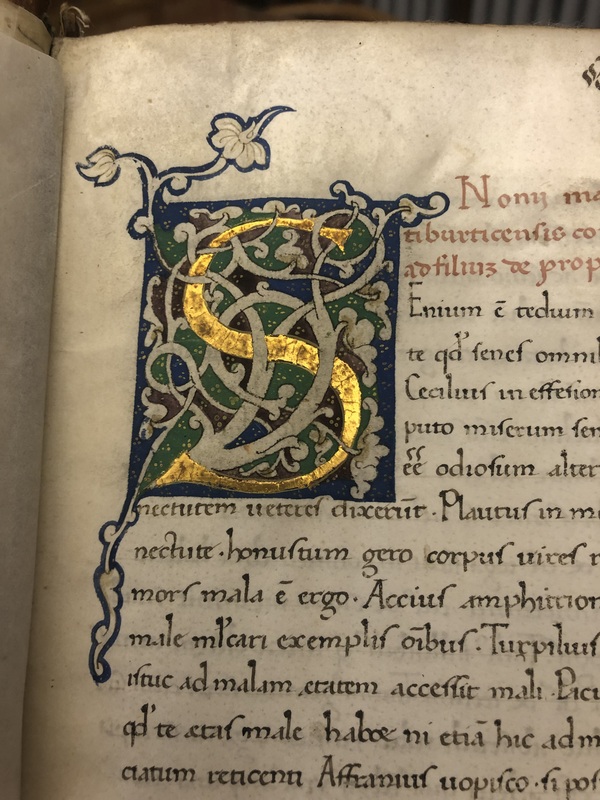 Nonij ma
tiburticensis co
ad filiuʒ de prop
S
Enium ē tedium
te qd senes omnib
Cecilius in effesion
puto miserum sen
eē odiosum alter
nectutem ueteres dixerūt. Plautus in me
nectute. honustum gero corpus uires
mors mala ē ergo. Accius amphitrion
male ml'cari exemplis oībus. Turpilius
istuc ad malam ętatem accessit mali. Pacu
qd' te ætas male habet ni etiā hic ad m
ciatum reticenti Affranius uopisco. si pos